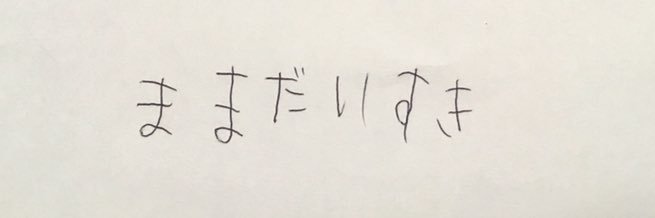 ままだいすき